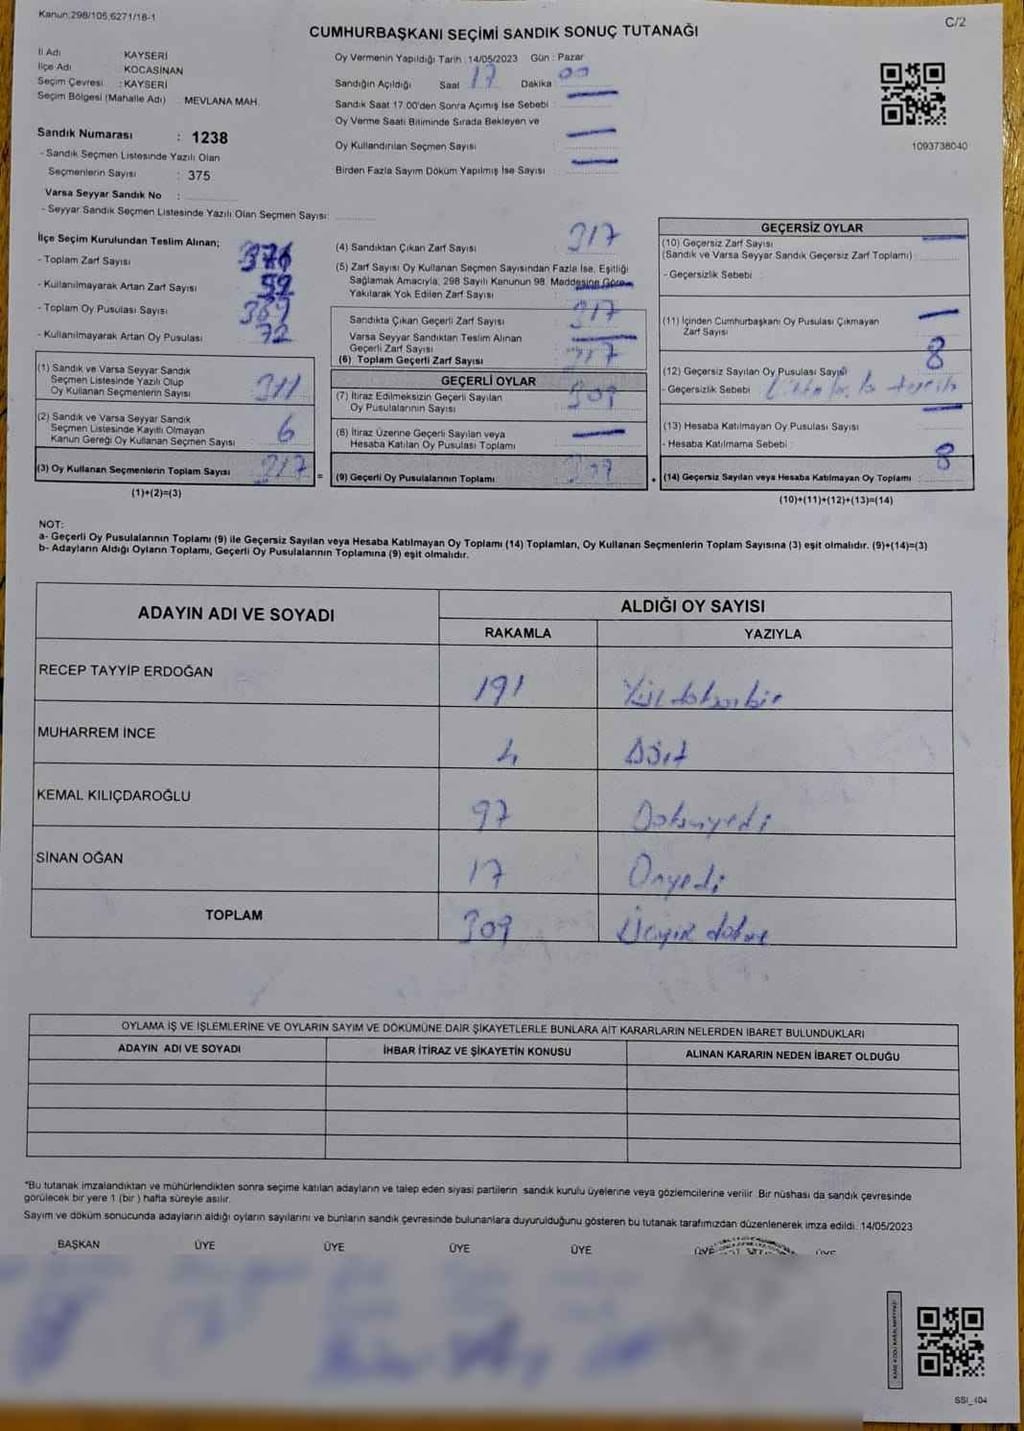 Kanun:298/105,6271/18-1
C/2
CUMHURBAŞKANI SEÇİMİ SANDIK SONUÇ TUTANAĞI
İl Adı : KAYSERİ
İlçe Adı : KOCASİNAN
Seçim Çevresi : KAYSERİ
Seçim Bölgesi (Mahalle Adı) : MEVLANA MAH.
Sandık Numarası : 1238
- Sandık Seçmen Listesinde Yazılı Olan
Seçmenlerin Sayısı : 375
Varsa Seyyar Sandık No :
- Seyyar Sandık Seçmen Listesinde Yazılı Olan Seçmen Sayısı:
Oy Vermenin Yapıldığı Tarih : 14/05/2023 Gün : Pazar
Sandığın Açıldığı Saat 17 Dakika 00
Sandık Saat 17.00'den Sonra Açımış İse Sebebi
Oy Verme Saati Bitiminde Sırada Bekleyen ve
Oy Kullandırılan Seçmen Sayısı
Birden Fazla Sayım Döküm Yapılmış İse Sayısı
1093738040
İlçe Seçim Kurulundan Teslim Alınan;
- Toplam Zarf Sayısı 376
- Kullanılmayarak Artan Zarf Sayısı 59
- Toplam Oy Pusulası Sayısı 389
- Kullanılmayarak Artan Oy Pusulası 72
(1) Sandık ve Varsa Seyyar Sandık
Seçmen Listesinde Yazılı Olup
Oy Kullanan Seçmenlerin Sayısı 311
(2) Sandık ve Varsa Seyyar Sandık
Seçmen Listesinde Kayıtlı Olmayan
Kanun Gereği Oy Kullanan Seçmen Sayısı 6
(3) Oy Kullanan Seçmenlerin Toplam Sayısı 317 =
(1)+(2)=(3)
(4) Sandıktan Çıkan Zarf Sayısı 317
(5) Zarf Sayısı Oy Kullanan Seçmen Sayısından Fazla İse, Eşitliği
Sağlamak Amacıyla, 298 Sayılı Kanunun 98. Maddesine Göre
Yakılarak Yok Edilen Zarf Sayısı
Sandıkta Çıkan Geçerli Zarf Sayısı 317
Varsa Seyyar Sandıktan Teslim Alınan
Geçerli Zarf Sayısı
(6) Toplam Geçerli Zarf Sayısı 317
GEÇERLİ OYLAR
(7) İtiraz Edilmeksizin Geçerli Sayılan
Oy Pusulalarının Sayısı 309
(8) İtiraz Üzerine Geçerli Sayılan veya
Hesaba Katılan Oy Pusulası Toplamı
(9) Geçerli Oy Pusulalarının Toplamı 309
GEÇERSİZ OYLAR
(10) Geçersiz Zarf Sayısı
(Sandık ve Varsa Seyyar Sandık Geçersiz Zarf Toplamı)
- Geçersizlik Sebebi
(11) İçinden Cumhurbaşkanı Oy Pusulası Çıkmayan
Zarf Sayısı
(12) Geçersiz Sayılan Oy Pusulası Sayısı 8
- Geçersizlik Sebebi
(13) Hesaba Katılmayan Oy Pusulası Sayısı
- Hesaba Katılmama Sebebi
(14) Geçersiz Sayılan veya Hesaba Katılmayan Oy Toplamı 8
(10)+(11)+(12)+(13)=(14)
NOT:
a- Geçerli Oy Pusulalarının Toplamı (9) ile Geçersiz Sayılan veya Hesaba Katılmayan Oy Toplamı (14) Toplamları, Oy Kullanan Seçmenlerin Toplam Sayısına (3) eşit olmalıdır. (9)+(14)=(3)
b- Adayların Aldığı Oyların Toplamı, Geçerli Oy Pusulalarının Toplamına (9) eşit olmalıdır.
ADAYIN ADI VE SOYADI
ALDIĞI OY SAYISI
RAKAMLA YAZIYLA
RECEP TAYYİP ERDOĞAN 191 Yüz doksan bir
MUHARREM İNCE 4 Dört
KEMAL KILIÇDAROĞLU 97 Doksanyedi
SİNAN OĞAN 17 Onyedi
TOPLAM 309 Üçyüz dokuz
OYLAMA İŞ VE İŞLEMLERİNE VE OYLARIN SAYIM VE DÖKÜMÜNE DAİR ŞİKAYETLERLE BUNLARA AİT KARARLARIN NELERDEN İBARET BULUNDUKLARI
ADAYIN ADI VE SOYADI İHBAR İTİRAZ VE ŞİKAYETİN KONUSU ALINAN KARARIN NEDEN İBARET OLDUĞU
"Bu tutanak imzalandıktan ve mühürlendikten sonra seçime katılan adayların ve talep eden siyasi partilerin sandık kurulu üyelerine veya gözlemcilerine verilir. Bir nüshası da sandık çevresinde
görülecek bir yere 1 (bir) hafta süreyle asılır.
Sayım ve döküm sonucunda adayların aldığı oyların sayılarını ve bunların sandık çevresinde bulunanlara duyurulduğunu gösteren bu tutanak tarafımızdan düzenlenerek imza edildi. 14/05/2023
BAŞKAN ÜYE ÜYE ÜYE ÜYE ÜYE ÜYE
SSI_104